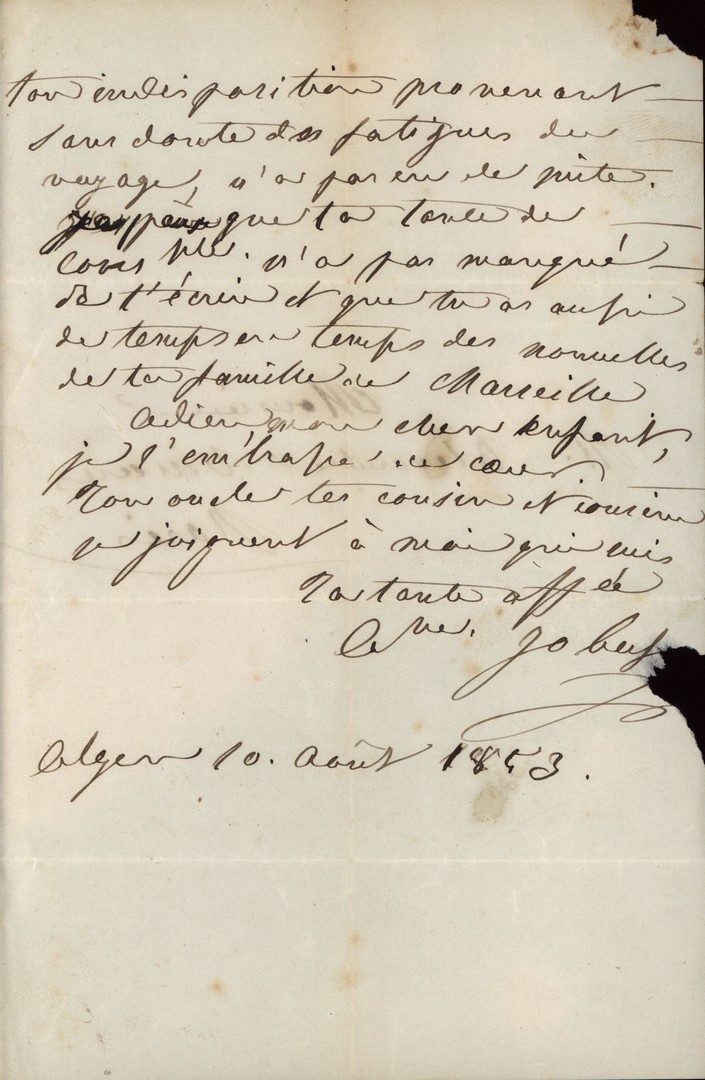 ton indisposition provenant
sans doute des fatigues du
voyage, n'a pas eu de suite.
que ta tante de
n'a pas manqué
de t'écrire et que tu as aussi
de temps en temps des nouvelles
de ta famille de Marseille
Adieu mon cher enfant,
je t'embrasse de cœur
Ton oncle tes cousin et cousine
se joignent à moi qui suis
Ta tante affée
Alger 10. Août 1853.